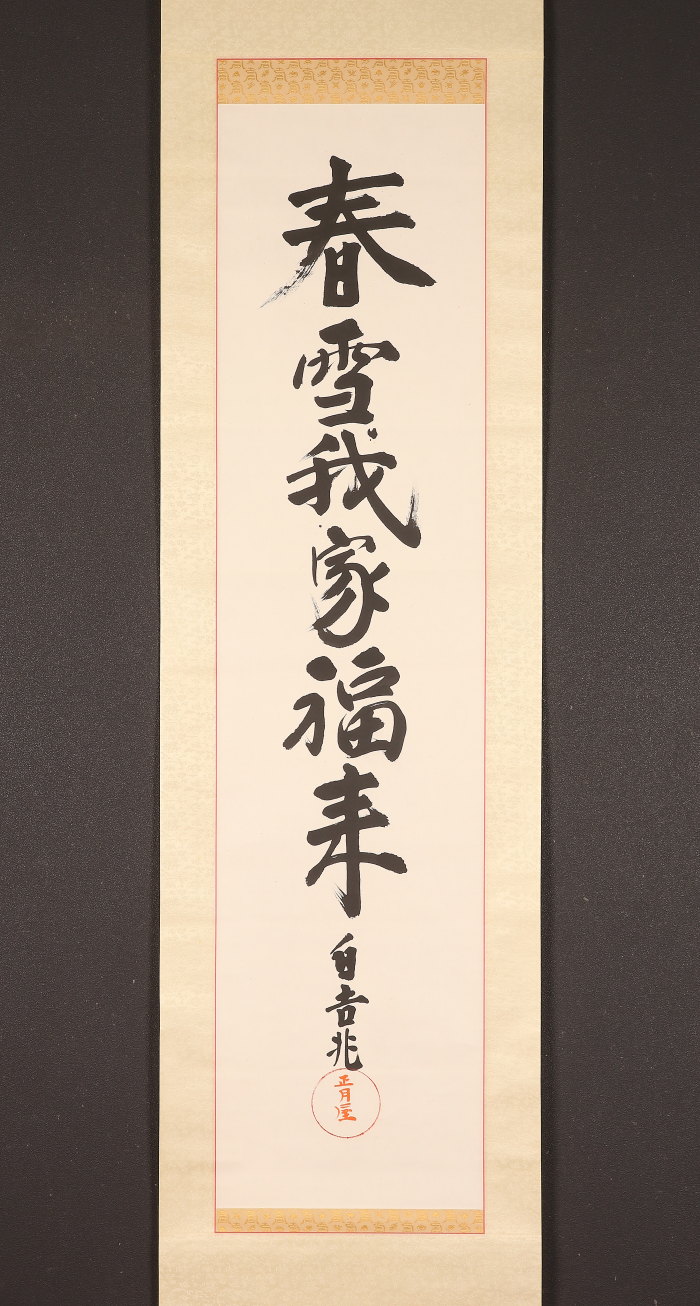 春雪我家福来
白吉兆
正月屋